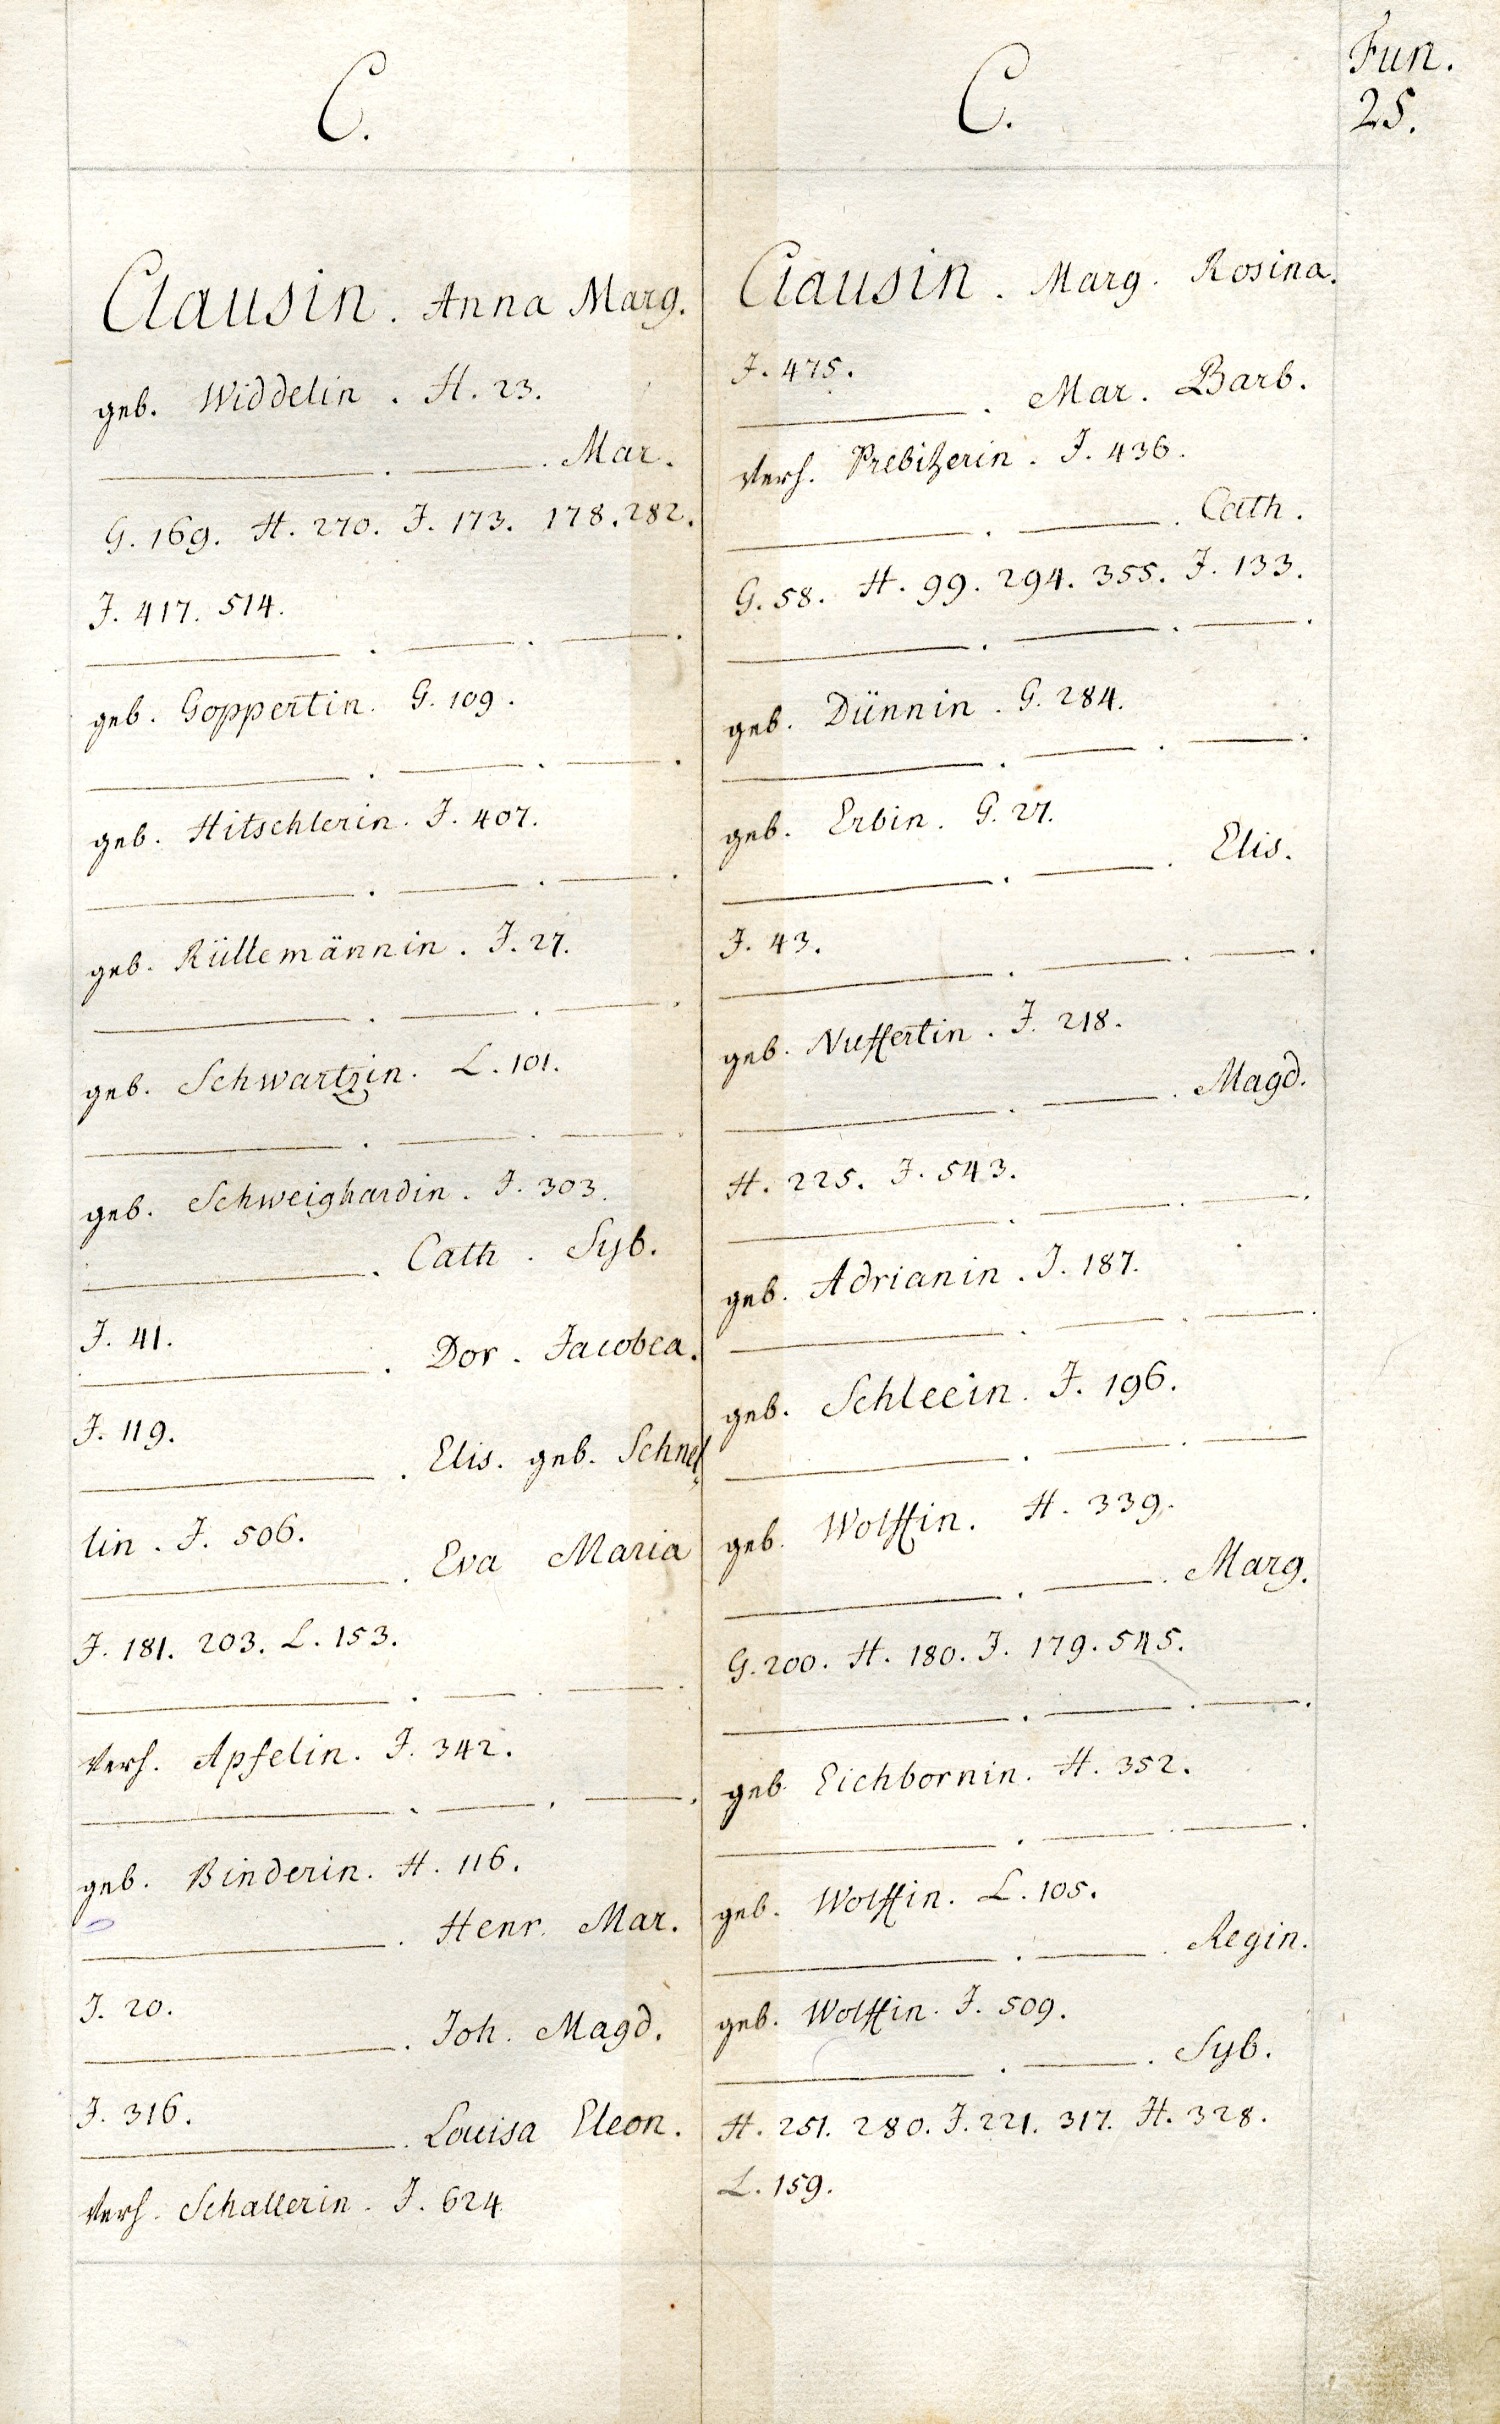 Fun.
25.
C.
Clausin. Anna Marg.
geb. Widdelin. H. 23.
——. ——. Mar.
G. 169. H. 270. J. 173. 178. 282.
J. 417. 514.
——. ——. ——.
geb. Goppertin. G. 109.
——. ——. ——.
geb. Hitschlerin. J. 407.
——. ——. ——.
geb. Küllemännin. J. 27.
——. ——. ——.
geb. Schwartzin. L. 101.
——. ——. ——.
geb. Schweighardin. J. 303.
——. Cath. Syb.
J. 41.
——. Dor. Jacobea.
J. 119.
——. Elis. geb. Schnel
lin. J. 506.
——. Eva Maria
J. 181. 203. L. 153.
——. ——. ——.
Verh. Apfelin. J. 342.
——. ——. ——.
geb. Binderin. H. 116.
——. Henr. Mar.
J. 20.
——. Joh. Magd.
J. 316.
——. Louisa Eleon.
Verh. Schallerin. J. 624
C.
Clausin. Marg. Rosina.
J. 475.
——. Mar. Barb.
Verh. Prebitzerin. J. 436.
——. ——. Cath.
G. 58. H. 99. 294. 355. J. 133.
——. ——. ——.
geb. Dünnin. G. 284.
——. ——. ——.
geb. Erbin. G. 27.
——. ——. Elis.
J. 43.
——. ——. ——.
geb. Nuffertin. J. 218.
——. ——. Magd.
H. 225. J. 543.
——. ——. ——.
geb. Adrianin. J. 187.
——. ——. ——.
geb. Schleein. J. 196.
——. ——. ——
geb. Wolffin. H. 339.
——. ——. Marg.
G. 200. H. 180. J. 179. 545.
——. ——. ——.
geb. Eichbornin. H. 352.
——. ——. ——.
geb. Wolffin. L. 105.
——. ——. Regin.
geb. Wolffin. J. 509.
——. ——. Syb.
H. 251. 280. J. 221. 317. H. 328.
L. 159.